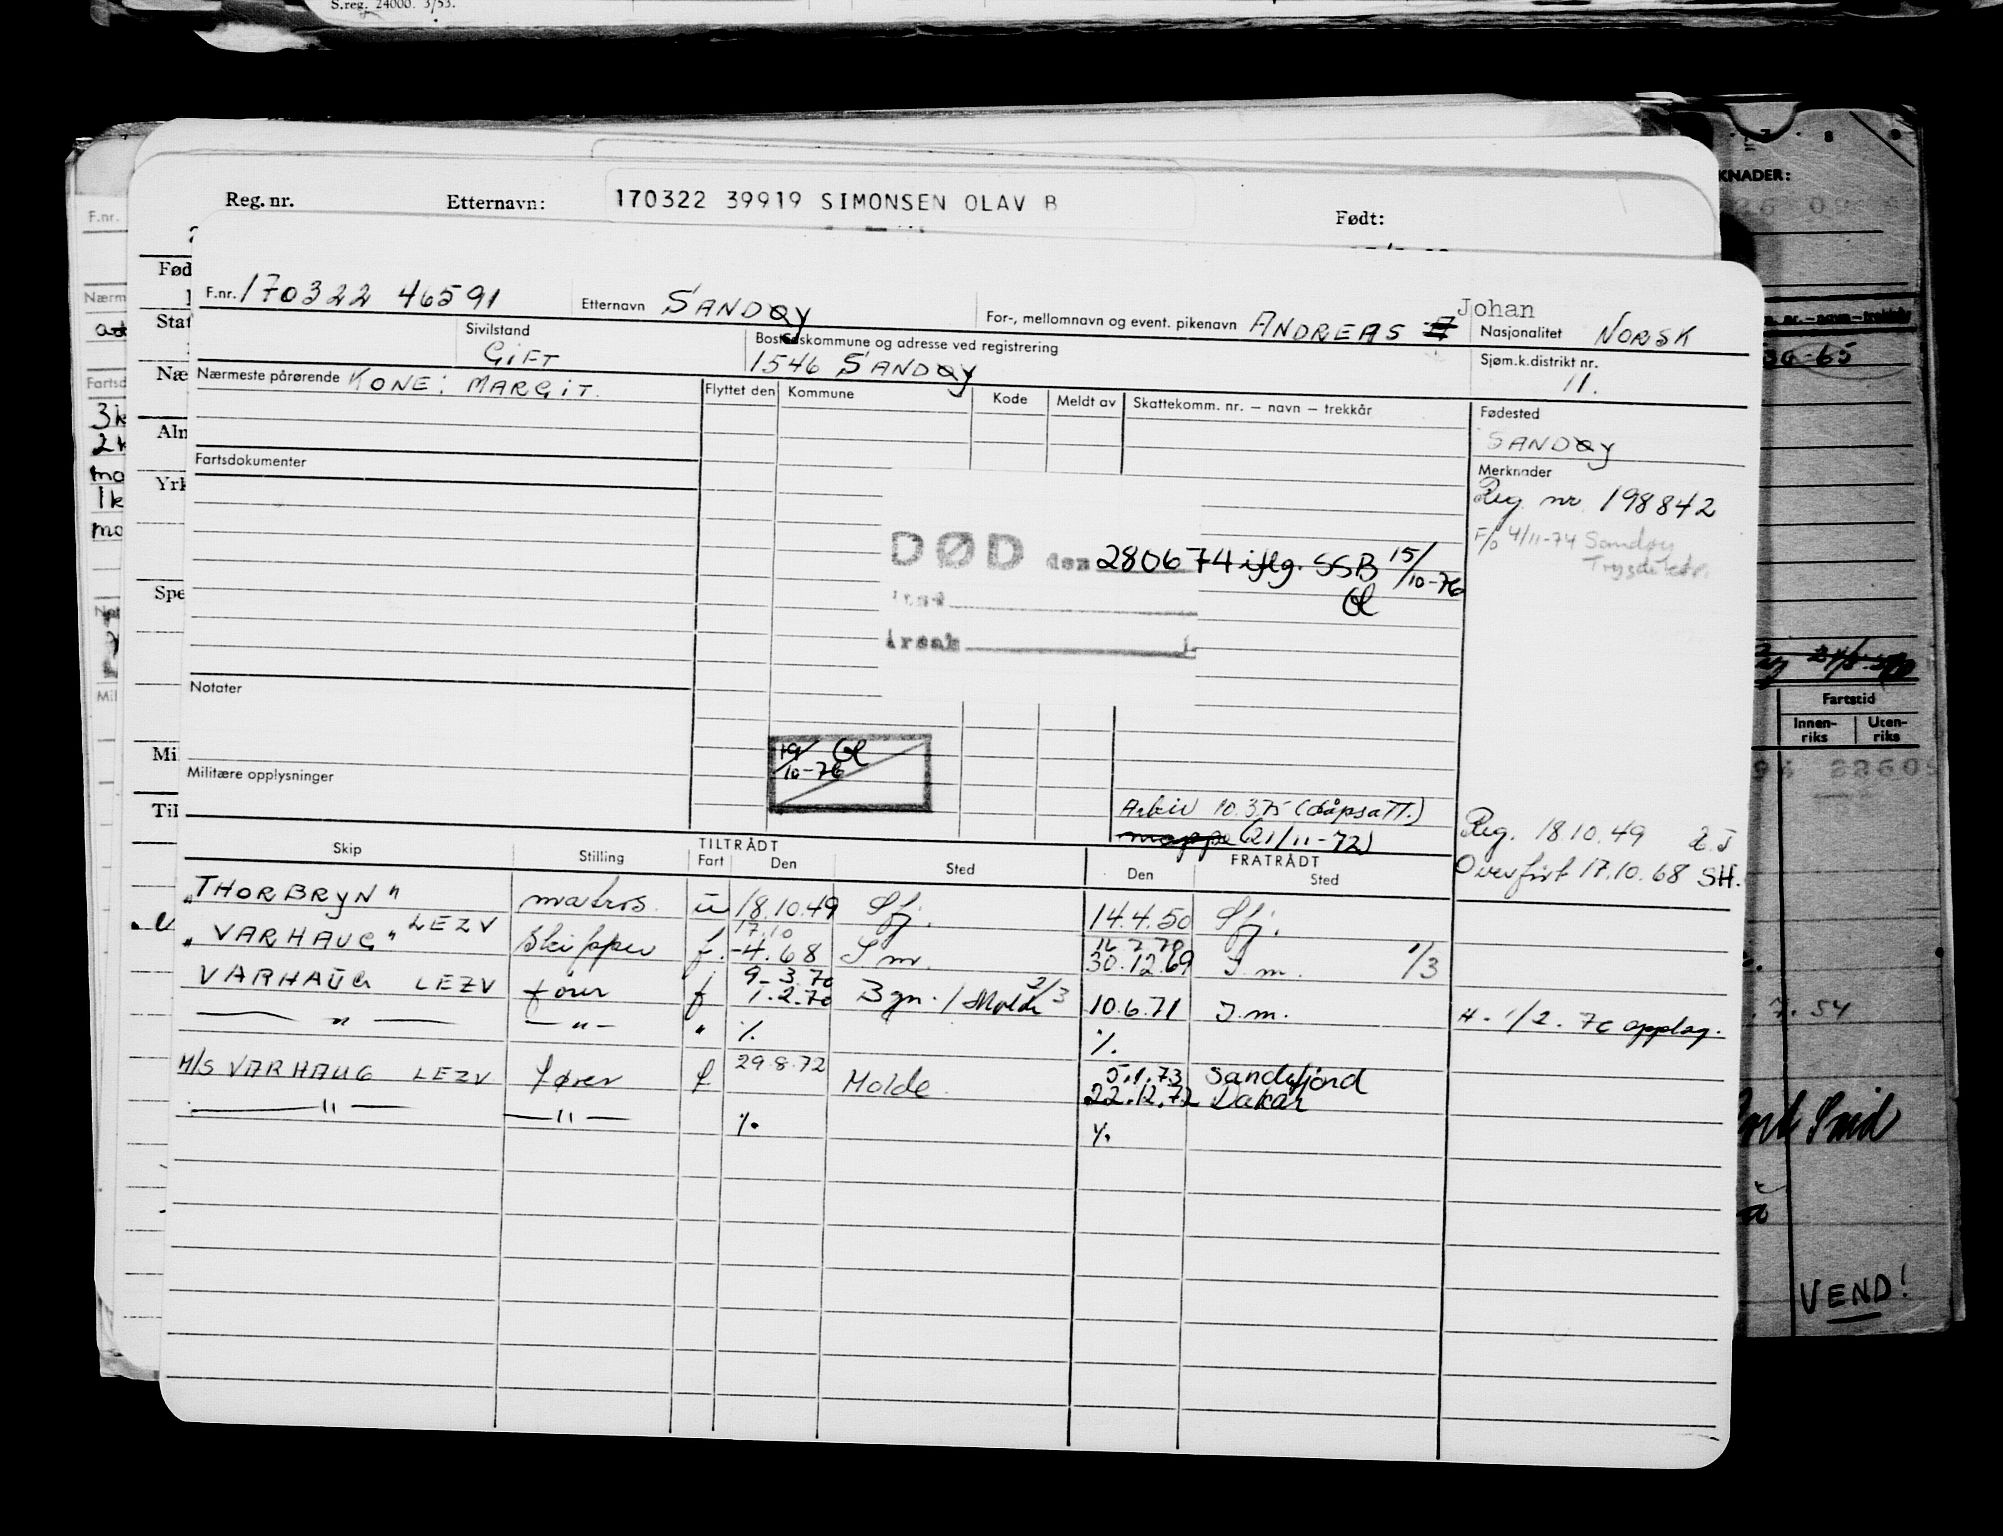 S.reg. 24000. 3/53.
Reg. nr. Etternavn: 170322 39919 SIMONSEN OLAV B Født:
F.nr. 170322 46591 Etternavn SANDØY For-, mellomnavn og event. pikenavn ANDREAS Johan Nasjonalitet NORSK
Sivilstand GIFT Bostedskommune og adresse ved registrering 1546 SANDØY Sjøm.k.distrikt nr. 11.
Nærmeste pårørende KONE: MARGIT. Flyttet den Kommune Kode Meldt av Skattekomm. nr. – navn – trekkår Fødested
SANDØY
Fartsdokumenter Merknader
Reg nr 198842
F/o 4/11-74 Sandøy
Trygdektr.
DØD den 280674 iflg. SSB 15/10-76
Årsak
Notater
19/10-76
Militære opplysninger
Arkiv 10.375 (dåpsatt.)
mappe (21/11-72)
Reg. 18.10.49
Overført 17.10.68 SH.
Skip Stilling TILTRÅDT FRATRÅDT
Fart Den Sted Den Sted
"THORBRYN" matros ü 18.10.49 Sfj. 14.4.50 Sfj.
"VARHAUG" LEZV Skipper f. 17.10 -4.68 I m. 16.2.70 30.12.69 I m. 1/3
VARHAUG LEZV fører f 9-3.70 1.2.70 Bgn. / Molde 2/3 10.6.71 I.m. H. 1/2.70 opplag.
— " — — " — " %. %.
M/S VARHAUG LEZV fører f 29.8.72 Molde 5.1.73 Sandefjord
22.12.72 Dakar
— " — — " — %. %.
F.nr.
Nærm
Fartsd
3k
2k
ma
1k
ma
Mil
Fød
Stat
Næ
Alm
Yrk
Spe
Mi
Til
7 8 9
KNADER:
36-65
Fartstid
Innen-riks Uten-riks
7. 54
Port Said
VEND!